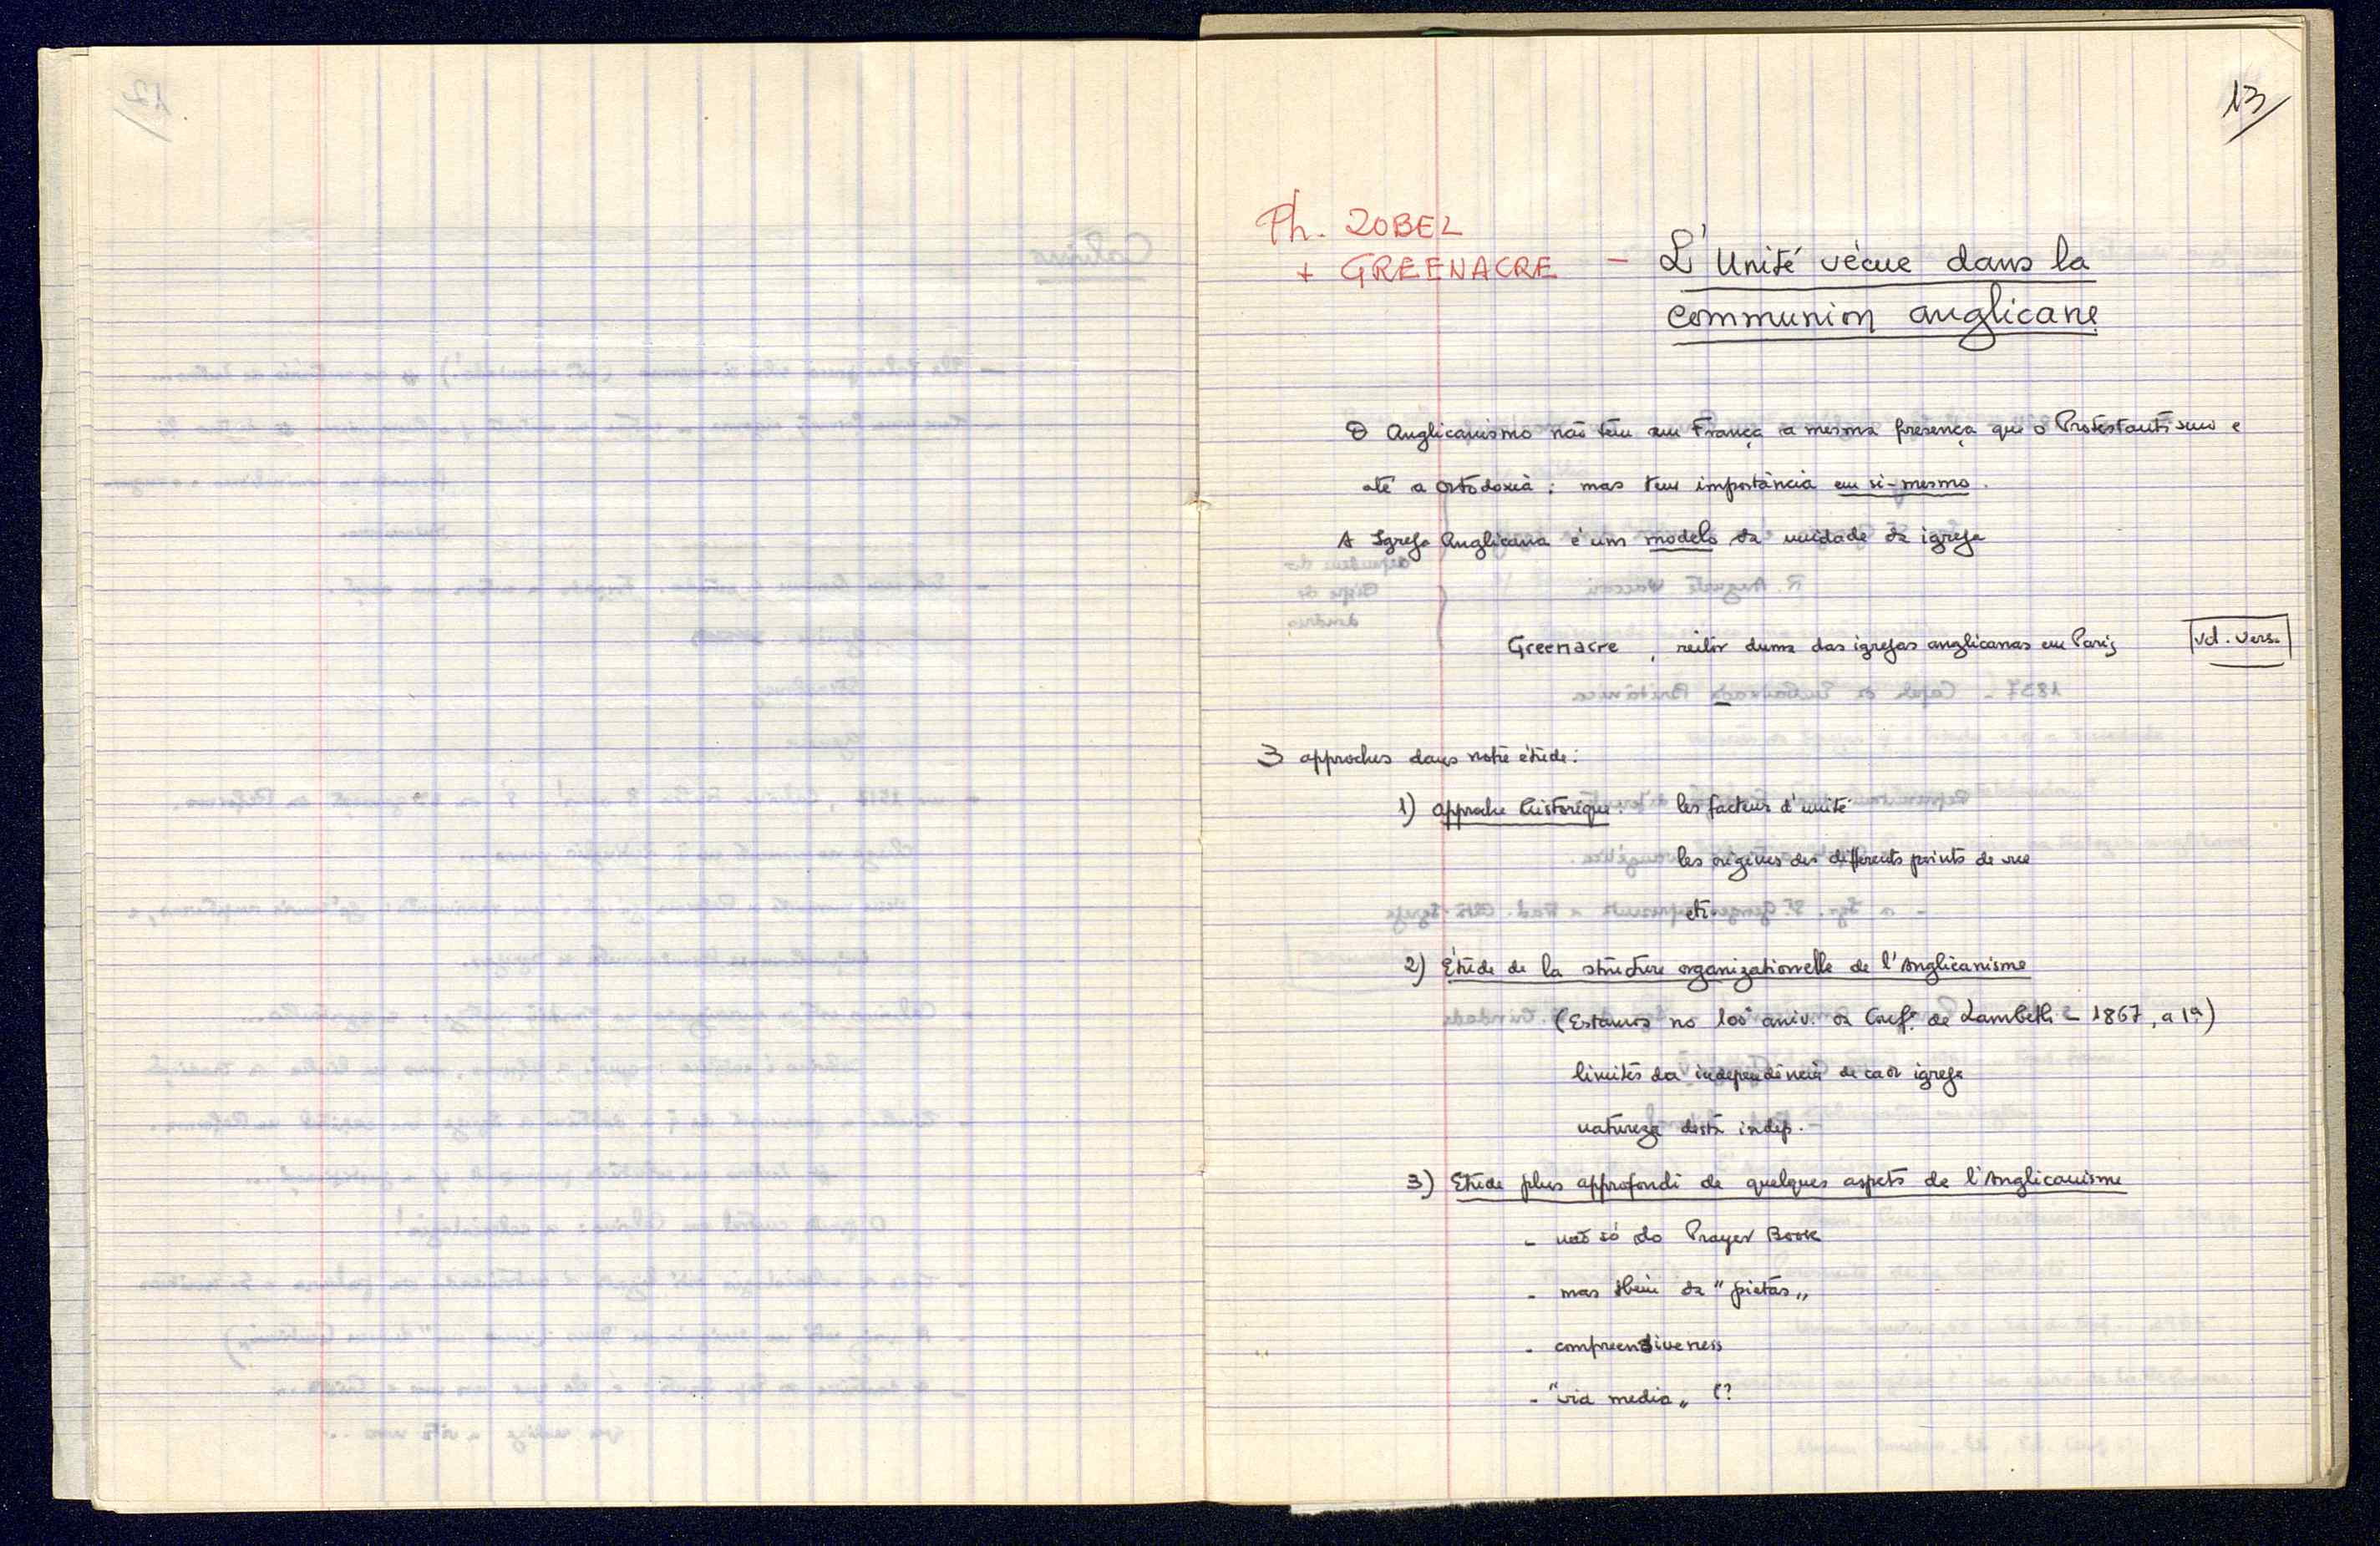 13
Ph. ZOBEL
+ GREENACRE - L'Unité vécue dans la
communion anglicane
O Anglicanismo não tem em França a mesma presença que o Protestantismo e
até a ortodoxia; mas tem importância em si-mesmo.
A Igreja Anglicana é um modelo da unidade da igreja
Greenacre, reitor duma das igrejas anglicanas em Paris
vd. vers.
3 approches dans notre étude:
1) approche historique: les facteurs d'unité
les origines des différents points de vue
etc.
2) Étude de la structure organizationnelle de l'Anglicanisme
(Estamos no 100º aniv. da Conf.ª de Lambeth - 1867, a 1ª)
limites da independência de cada igreja
natureza desta indep.
3) Étude plus approfondi de quelques aspets de l'Anglicanisme
- não só do Prayer Book
- mas tbém da "pietas"
- compreensiveness
- "via media"